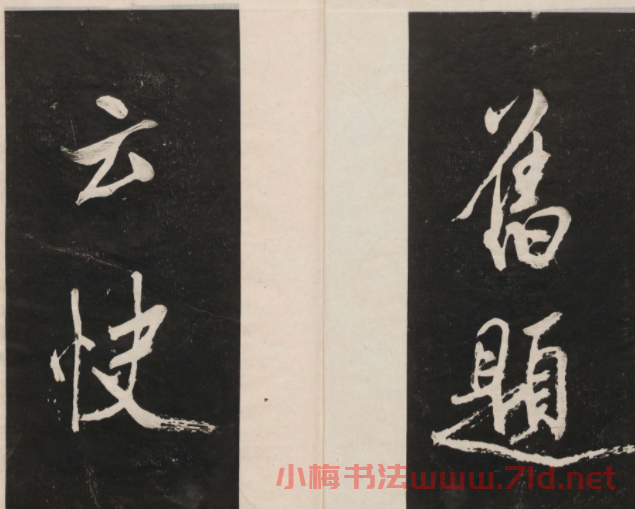 舊題
云快
小梅书法www.71d.net